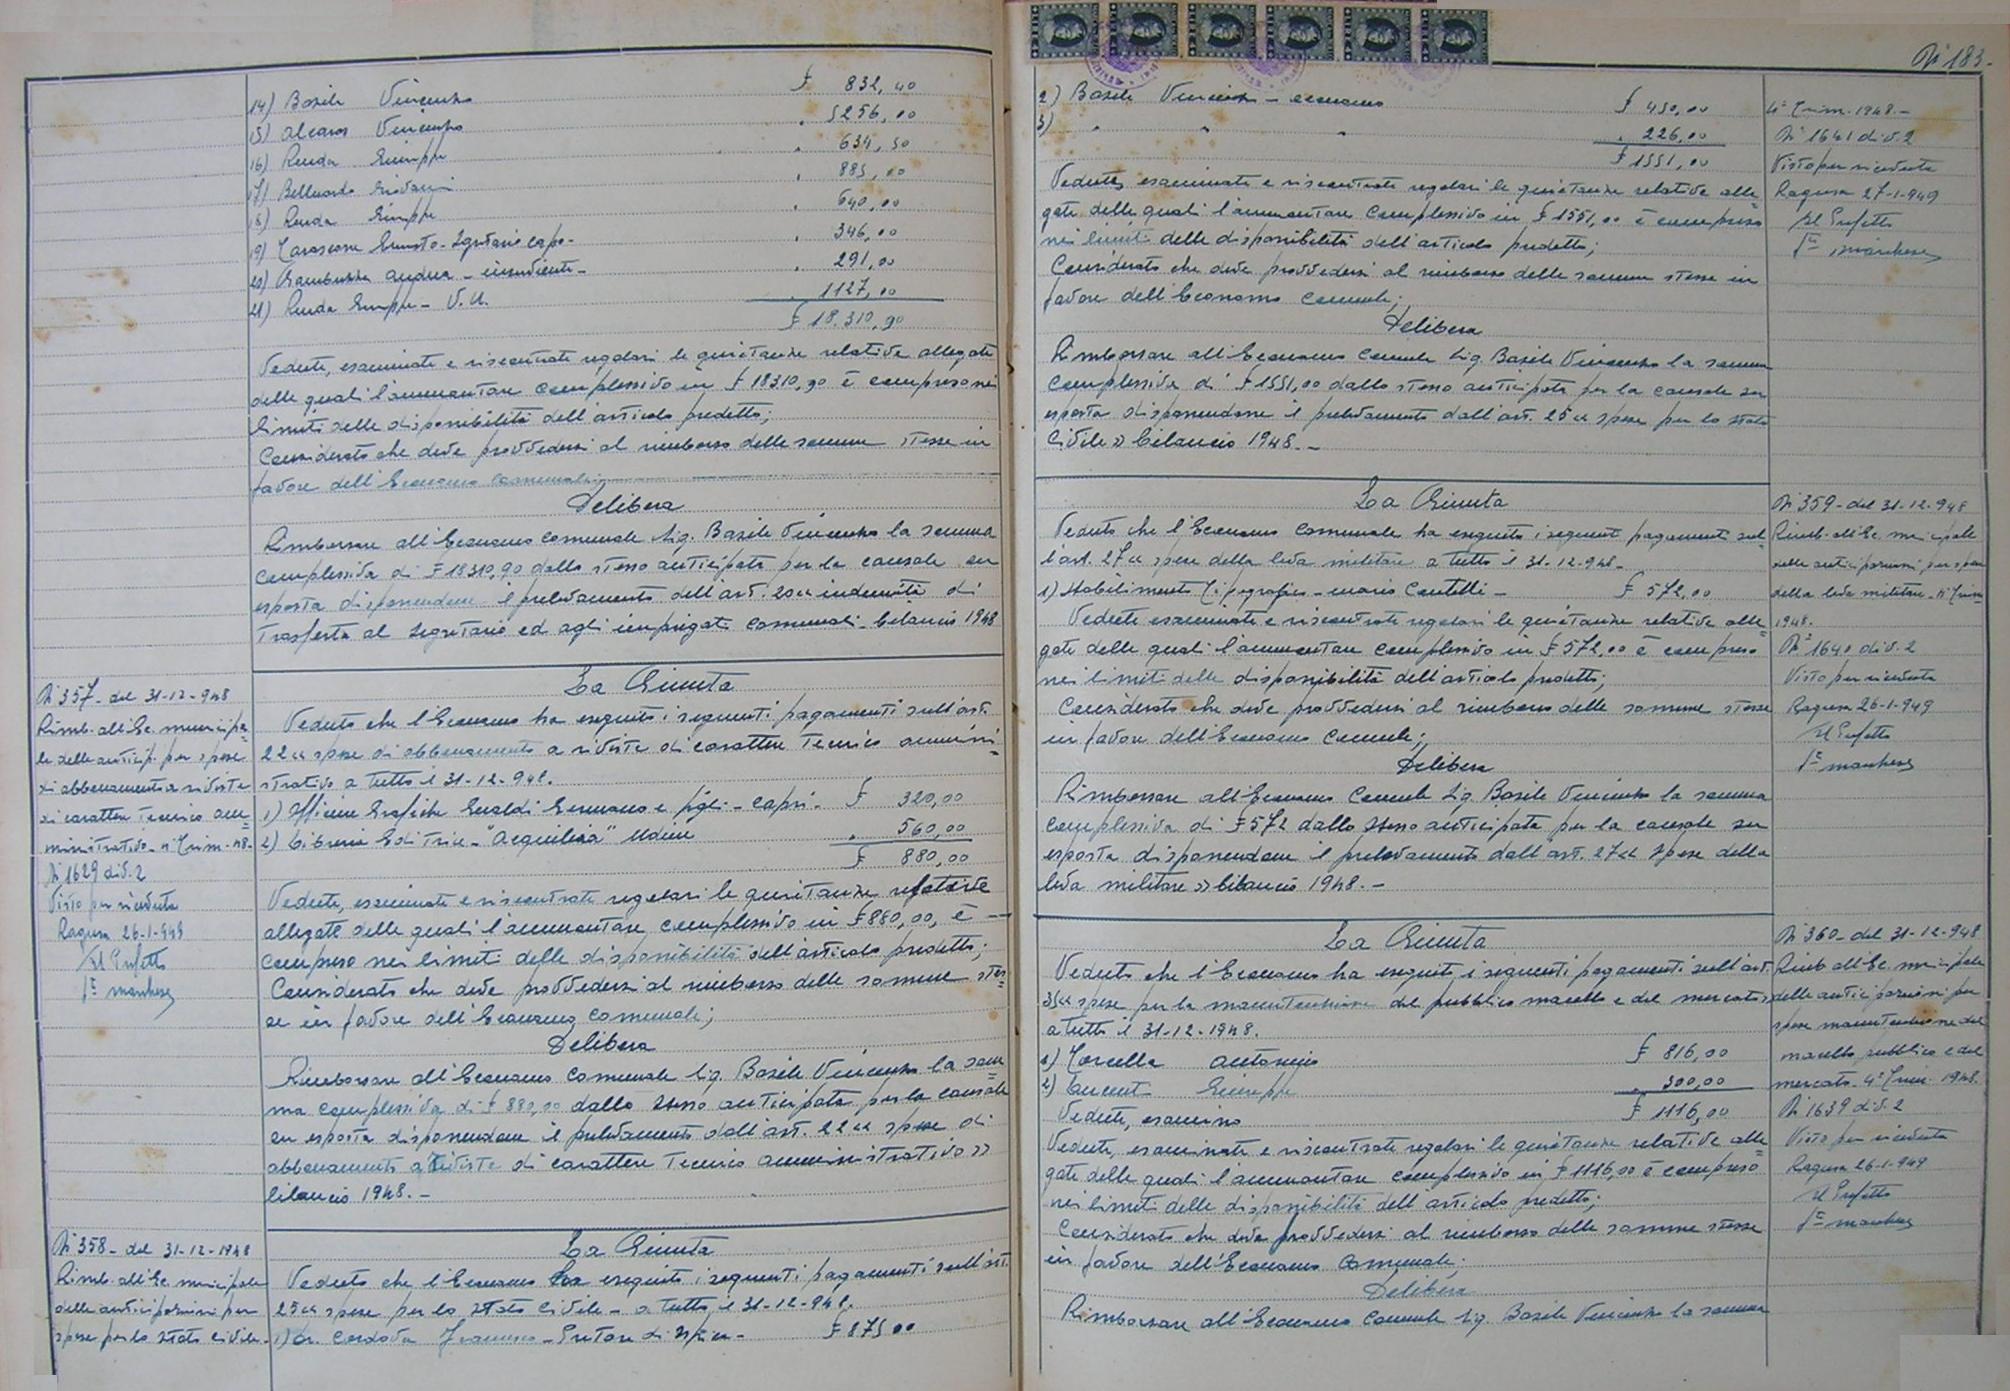 14) Basile Vincenzo £ 832,40
15) Alcaros Vincenzo " 5256,00
16) Renda Giuseppe " 634,50
17) Belluardo Giovanni " 885,00
18) Renda Giuseppe " 640,00
19) Tarascone Ernesto - Segretario capo - " 346,00
20) Gambuzza Andrea - " 291,00
21) Renda Giuseppe - V.U. " 1127,00
£ 18.310,90
Vedute, esaminate e riscontrate regolari le quietanze relative allegate
delle quali l'ammontare complessivo in £ 18310,90 è compreso nei
limiti delle disponibilità dell'articolo predetto;
Considerato che deve provvedersi al rimborso delle somme stesse in
favore dell'Economo Comunale;
Delibera
Rimborsare all'Economo Comunale Sig. Basile Vincenzo la somma
complessiva di £ 18310,90 dallo stesso anticipata per la causale su
esposta disponendone il prelevamento dall'art. 20 « indennità di
trasferta al Segretario ed agli impiegati comunali - bilancio 1948
N° 357 - del 31-12-948
Rimb. all'Ec. municipa=
le delle anticip. per spese
di abbonamento a riviste
di carattere Tecnico am=
ministrativo - 4° Trim. 48-
N° 1629 div. 2
Visto per ricevuta
Ragusa 26-1-949
Il Prefetto
f° Marchese
La Giunta
Veduto che l'Economo ha eseguito i seguenti pagamenti sull'art.
22 « spese di abbonamento a riviste di carattere Tecnico ammini=
strativo a tutto il 31-12-948.
1) Officine Grafiche Gualdi Germano e figli - Capri - £ 320,00
2) Libreria Editrice - "Aequilixia" Udine " 560,00
£ 880,00
Vedute, esaminate e riscontrate regolari le quietanze relative
allegate delle quali l'ammontare complessivo in £ 880,00, è -
compreso nei limiti delle disponibilità dell'articolo predetto;
Considerato che deve provvedersi al rimborso delle somme stes=
se in favore dell'Economo Comunale;
Delibera
Rimborsare all'Economo Comunale Sig. Basile Vincenzo la som=
ma complessiva di £ 880,00 dallo stesso anticipata per la causale
su esposta disponendone il prelevamento dall'art. 22 « spese di
abbonamento a riviste di carattere Tecnico amministrativo »
bilancio 1948. -
N° 358 - del 31-12-1948
Rimb. all'Ec. municipale
delle anticipazioni per
spese per lo stato civile -
La Giunta
Veduto che l'Economo ha eseguito i seguenti pagamenti sull'art.
25 « spese per lo stato civile - a tutto il 31-12-948.
1) Dr. Cordova Francesco - Pretore di - £ 875 00
N° 183 -
2) Basile Vincenzo - economo £ 450,00
3) " " " " 226,00
£ 1551,00
Vedute, esaminate e riscontrate regolari le quietanze relative alle=
gate delle quali l'ammontare complessivo in £ 1551,00 è compreso
nei limiti delle disponibilità dell'articolo predetto;
Considerato che deve provvedersi al rimborso delle somme stesse in
favore dell'Economo Comunale;
Delibera
Rimborsare all'Economo Comunale Sig. Basile Vincenzo la somma
complessiva di £ 1551,00 dallo stesso anticipata per la causale su
esposta disponendone il prelevamento dall'art. 25 « spese per lo stato
civile » bilancio 1948. -
4° Trim. 1948. -
N° 1641 div. 2
Visto per ricevuta
Ragusa 27-1-949
Il Prefetto
f° Marchese
La Giunta
Veduto che l'Economo Comunale ha eseguito i seguenti pagamenti sul=
l'art. 27 « spese della leva militare a tutto il 31-12-948 -
1) Stabilimento Tipografico - Mario Cantelli - £ 572,00
Vedute esaminate e riscontrate regolari le quietanze relative alle=
gate delle quali l'ammontare complessivo in £ 572,00 è compreso
nei limiti delle disponibilità dell'articolo predetto;
Considerato che deve provvedersi al rimborso delle somme stesse
in favore dell'Economo Comunale;
Delibera
Rimborsare all'Economo Comunale Sig. Basile Vincenzo la somma
complessiva di £ 572 dallo stesso anticipata per la causale su
esposta disponendone il prelevamento dall'art. 27 « spese della
leva militare » bilancio 1948. -
N° 359 - del 31-12-948
Rimb. all'Ec. municipale
delle anticipazioni per spese
della leva militare - 4° Trim.
1948.
N° 1640 div. 2
Visto per ricevuta
Ragusa 26-1-949
Il Prefetto
f° Marchese
La Giunta
Veduto che l'Economo ha eseguito i seguenti pagamenti sull'art.
35 « spese per la manutenzione del pubblico macello e del mercato »
a tutto il 31-12-1948.
1) Torcella Antonino £ 816,00
2) Giuseppe " 300,00
Vedute, esamino £ 1116,00
Vedute, esaminate e riscontrate regolari le quietanze relative alle=
gate delle quali l'ammontare complessivo in £ 1116,00 è compreso
nei limiti delle disponibilità dell'articolo predetto;
Considerato che deve provvedersi al rimborso delle somme stesse
in favore dell'Economo Comunale;
Delibera
Rimborsare all'Economo Comunale Sig. Basile Vincenzo la somma
N° 360 - del 31-12-948
Rimb. all'Ec. municipale
delle anticipazioni per
spese manutenzione del
macello pubblico e del
mercato - 4° Trim. 1948.
N° 1639 div. 2
Visto per ricevuta
Ragusa 26-1-949
Il Prefetto
f° Marchese